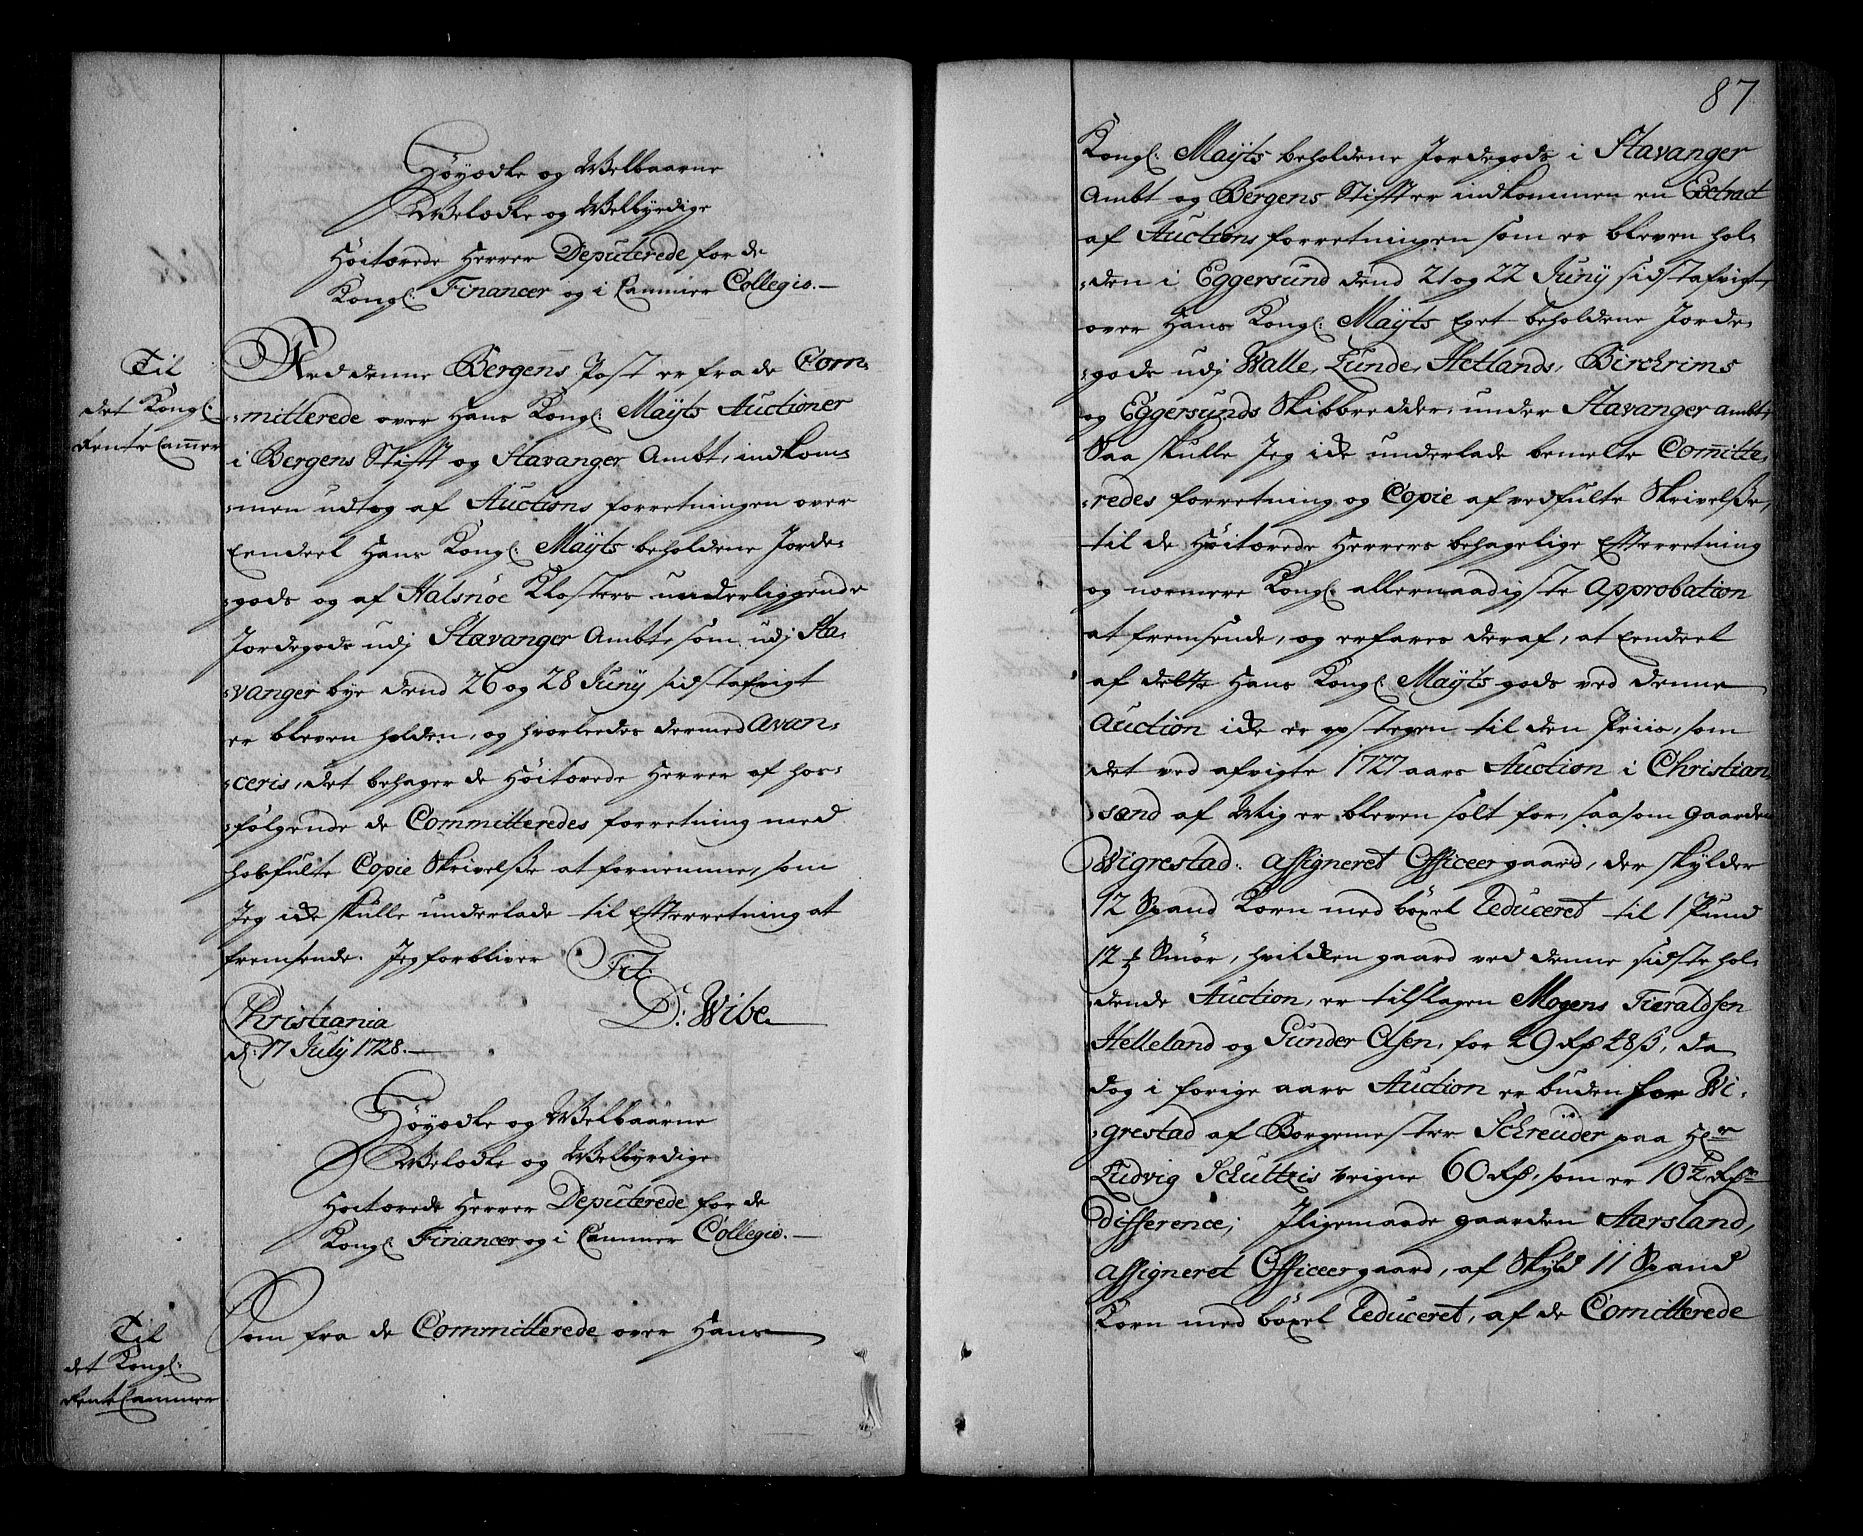 Høyædle og Welbaarne
Welædle og Welbyrdige
Høitærede Herrer Deputerede for de
Kongl: Financer og i Cammer Collegio.—
Til
det Kongl:
Rente Cammer
Med denne Bergens Post er fra de Com-
-mitterede over Hans Kongl: Mayts Auctioner
i Bergens Stift og Stavanger Ambt, indkom-
-men udtog af Auctions forretningen over
Eendeel Hans Kongl: Mayts beholdene Jorde-
-gods og af Halsnöe Klosters underliggende
Jordegods udj Stavanger Ambt, som udj Sta-
-vanger bye dend 26 og 28 Juny sidstafvigt
er bleven holden, og hvorleedes dermed avan-
-ceris, det behager de Høitærede Herrer af hos-
-følgende de Committeredes forretning med
hosfulte Copie Skrivelße at fornemme, som
Jeg icke skulle underlade til Efterretning at
fremsende. Jeg forbliver Tit:
D: Wibe
Christiania
d: 17 July 1728.—
Høyædle og Welbaarne
Welædle og Welbyrdige
Høitærede Herrer Deputerede for de
Kongl: Financer og i Cammer Collegio.—
Til
det Kongl:
Rente Cammer
Som fra de Committerede over Hans
87
Kongl: Mayts beholdene Jordegods i Stavanger
Ambt og Bergens Stift er indkommen en Extract
af Auctions forretningen som er bleven hol-
-den i Eggersund dend 21 og 22 Juny sidstafvigt,
over Hans Kongl: Mayts Eget beholdene Jorde-
-gods udj Walle, Lunde, Hetlands, Birchrims
og Eggersunds Skibbredder, under Stavanger ambt,
Saa skulle Jeg icke underlade bemelte Comitte-
-redes forretning og Copie af vedfulte Skrivelße,
til de Høitærede Herrers behagelige Efterretning
og nærmere Kongl: allernaadigste Approbation
at fremsende, og erfares deraf, at Eendeel
af dette Hans Kongl: Mayts gods ved denne
Auction icke er opstegen til den Priis, som
det ved afvigte 1727 aars Auction i Christian-
-sand af Mig er bleven solt for, saasom gaarden
Wigrestad, assigneret Officeer gaard, der skylder
12 Spand Korn med böxel Reduceret til 1 Pund
12 ½ Smör, hvilcken gaard ved denne sidste hol-
-dende Auction, er tilslagen Mogens Tieraldsen
Helleland og Gunder Olsen, for 49 Rdr 48 ß, da
dog i forige aars Auction er buden for Wi-
-grestad af Borgemester Schreüder paa Hr
Ludvig Schulttis veigne 60 Rdr, som er 10½ Rdr
difference; Iligemaade gaarden Aarsland,
assigneret Officeer gaard, af Skyld 11 Spand
Korn med böxel Reduceret, af de Comitterede